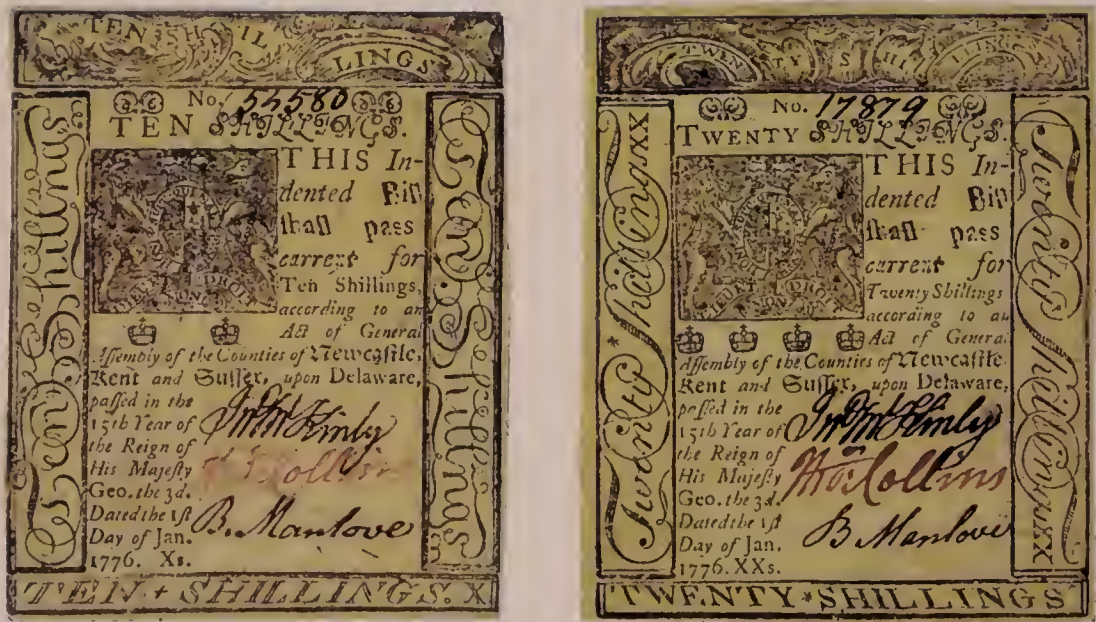 TEN SHIL
LINGS
No. 54580
TEN SHILLINGS.
THIS In-
dented Bill
ſhall pass
current for
Ten Shillings,
according to an
Act of General
Aſſembly of the Counties of Newcaſtle,
Kent and Suſſex, upon Delaware,
paſſed in the
15th Year of
the Reign of
His Majeſty
Geo. the 3d.
Dated the 1ſt
Day of Jan.
1776. Xs.
Jno McKinly
Collins
B. Manlove
Ten Shillings
Ten Shillings
TEN * SHILLINGS. X
TWEN TY S HI LLINGS
No. 17879
TWENTY SHILLINGS.
THIS In-
dented Bill
ſhall pass
current for
Twenty Shillings
according to an
Act of General
Aſſembly of the Counties of Newcaſtle
Kent and Suſſex, upon Delaware,
paſſed in the
15th Year of
the Reign of
His Majeſty
Geo. the 3d.
Dated the 1ſt
Day of Jan.
1776. XXs.
Jno McKinly
Wm Collins
B Manlove
Twenty ShillingsXX
Twenty ShillingsXX
TWENTY*SHILLINGS